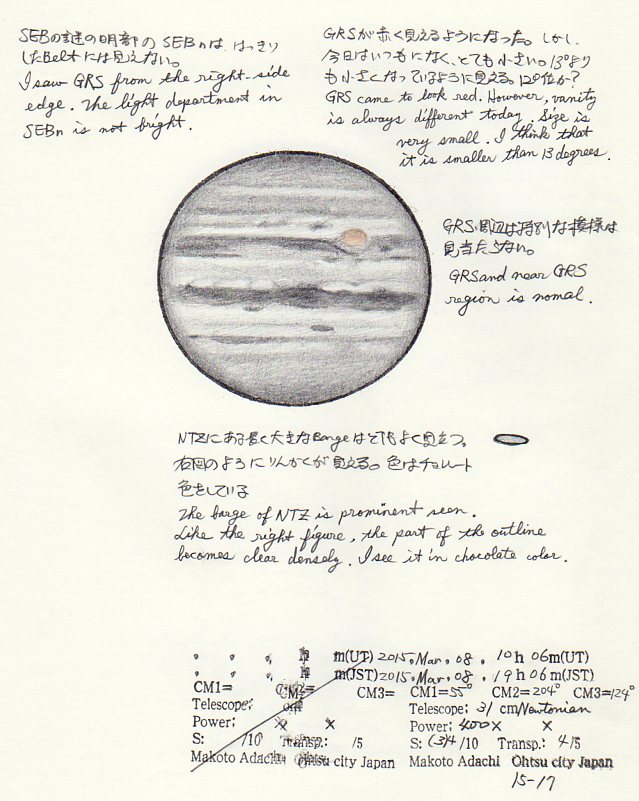 SEBの謎の明部の SEBnは はっきり
したBeltには見えない。
I saw GRS from the right-side
edge. The light department in
SEBn is not bright.
GRSが赤く見えるようになった。しかし、
今日はいつもになく、とても小さい。13°より
も小さくなっているように見える。12°位か?
GRS came to look red. However, vanity
is always different today. Size is
very small. I think that
it is smaller than 13 degrees.
GRS周辺は特別な模様は
見当たらない。
GRS and near GRS
region is nomal.
NTZにある長く大きなBargeはとてもよく見立つ。
右図のようにりんかくが見える。色はチョレート
色をしている
The barge of NTZ is prominent seen.
Like the right figure, the part of the outline
becomes clear densely. I see it in chocolate color.
. . . h m(UT)
. . . h m(JST)
CM1= CM2= CM3=
Telescope: cm
Power: × ×
S: /10 Transp.: /5
Makoto Adachi Ohtsu city Japan
2015. Mar. 08. 10h 06m(UT)
2015. Mar. 08. 19h 06m(JST)
CM1=55° CM2=204° CM3=124°
Telescope: 31 cm Newtonian
Power: 400× ×
S: (3)4/10 Transp.: 4/5
Makoto Adachi Ohtsu city Japan
15-17